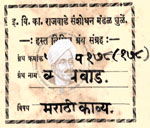 इ. वि. का. राजवाडे संशोधन मंडळ धुळे.
हस्त लिखित ग्रंथ संग्रह
ग्रंथ क्रमांक प १७८ (१७८)
ग्रंथ नाम
विषय मराठी काव्य.